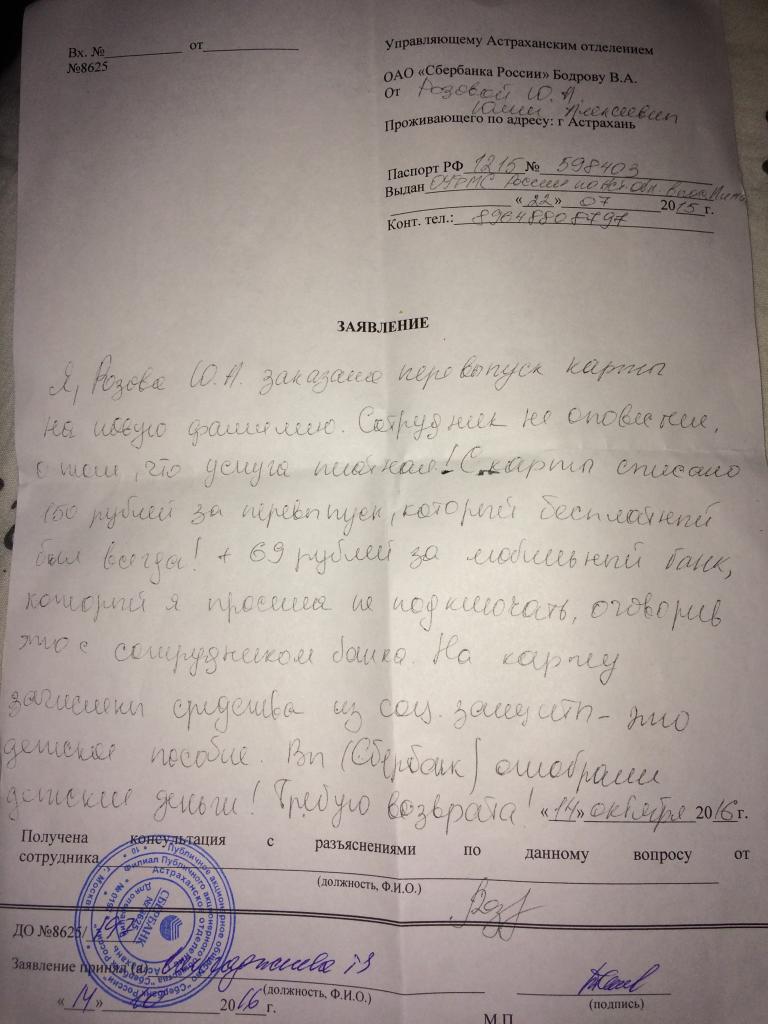 Вх. №__________ от____________
№8625
Управляющему Астраханским отделением
ОАО «Сбербанка России» Бодрову В.А.
От Розовой Ю.А.
Юлии Алексеевны
Проживающего по адресу: г Астрахань
Паспорт РФ 1215 № 598403
Выдан ОУФМС России по Аст. обл.
«22» 07 2015 г.
Конт. тел.: 89648808797
ЗАЯВЛЕНИЕ
Я, Розова Ю.А. заказала перевыпуск карты
на новую фамилию. Сотрудник не оповестил,
о том, что услуга платная! С карты списано
150 рублей за перевыпуск, который бесплатный
был всегда! + 69 рублей за мобильный банк,
который я просила не подключать, оговорив
это с сотрудником банка. На карту
зачислены средства из соц. защиты - это
детское пособие. Вы (Сбербанк) отобрали
детские деньги! Требую возврата! «14» октября 2016 г.
Получена консультация с разъяснениями по данному вопросу от
сотрудника
(должность, Ф.И.О.)
ДО №8625/
Заявление принял (а)
(должность, Ф.И.О.)
(подпись)
«14» 10 2016 г.
М.П
СБЕРБАНК